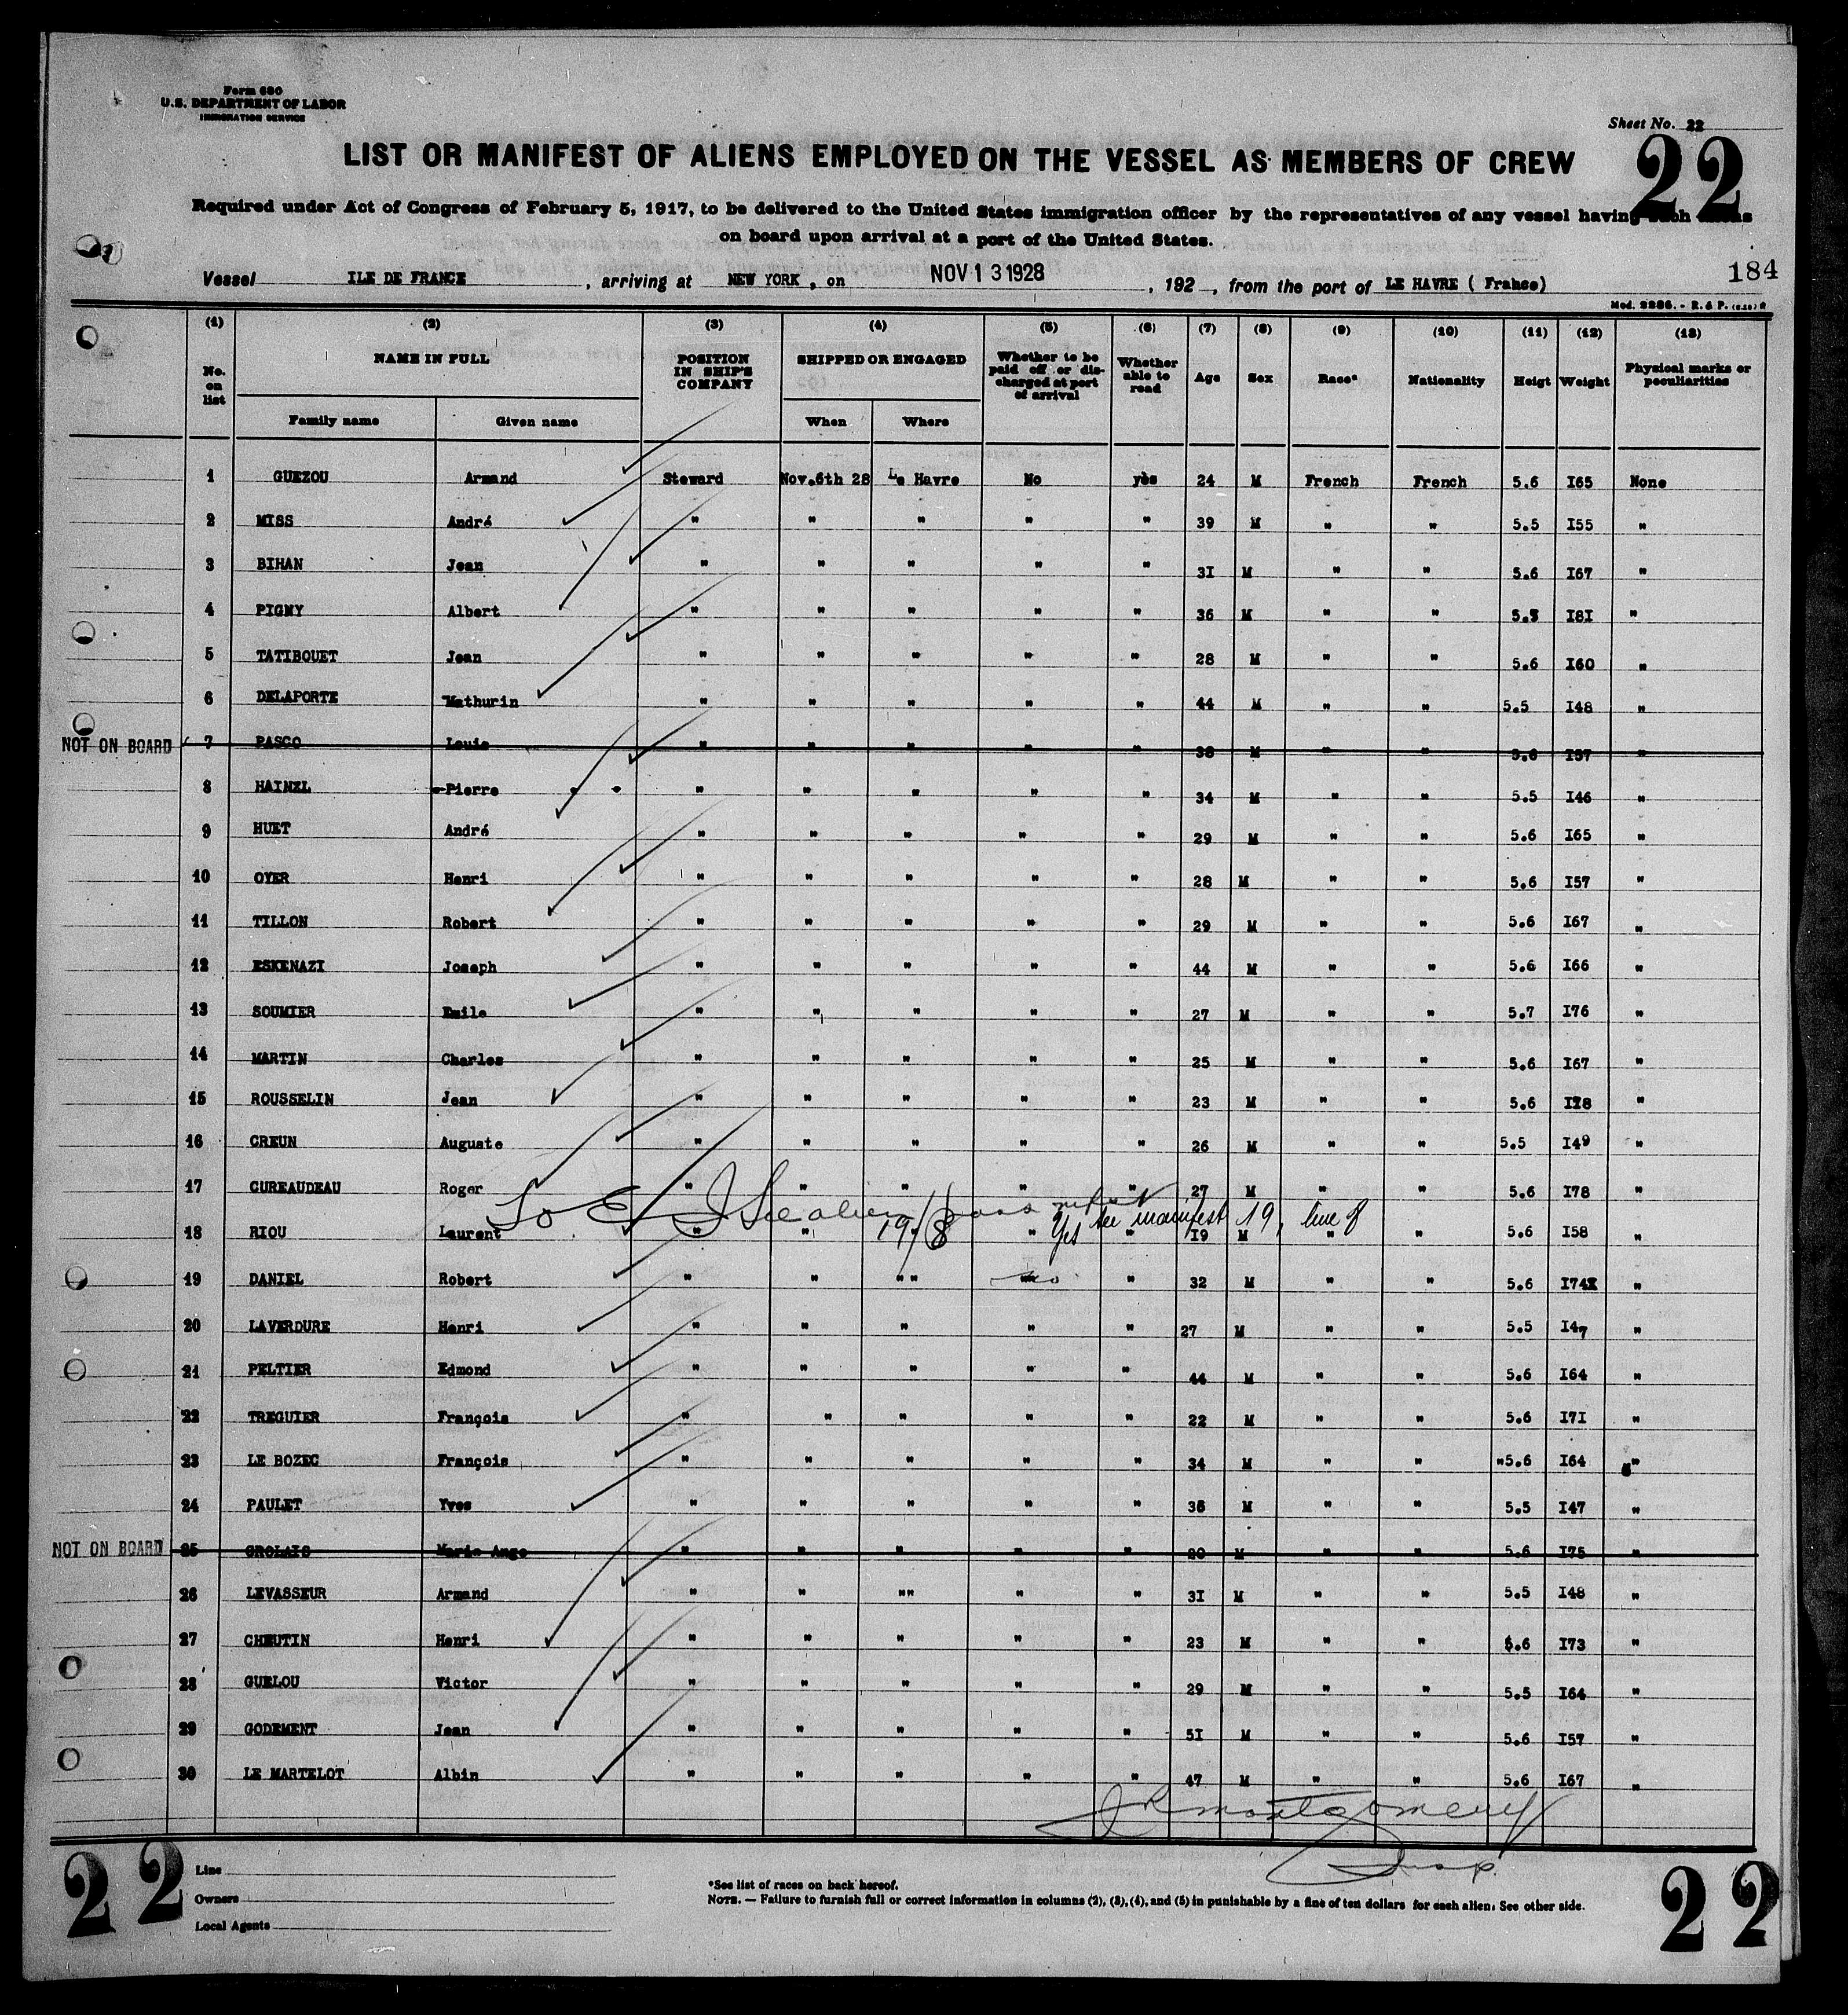 Form 680
U.S. DEPARTMENT OF LABOR
IMMIGRATION SERVICE
Sheet No. 22
22
LIST OR MANIFEST OF ALIENS EMPLOYED ON THE VESSEL AS MEMBERS OF CREW
Required under Act of Congress of February 5, 1917, to be delivered to the United States immigration officer by the representatives of any vessel having such aliens
on board upon arrival at a port of the United States.
184
Vessel ILE DE FRANCE , arriving at NEW YORK , on NOV 13 1928 , 192 , from the port of LE HAVRE ( France)
Mod. 2286. - R. & P.
(1) (2) (3) (4) (5) (6) (7) (8) (9) (10) (11) (12) (13)
No. on list NAME IN FULL POSITION IN SHIP'S COMPANY SHIPPED OR ENGAGED Whether to be paid off or discharged at port of arrival Whether able to read Age Sex Race* Nationality Heigt Weight Physical marks or peculiarities
Family name Given name When Where
1 GUEZOU Armand Steward Nov.6th 28 Le Havre No yès 24 M French French 5.6 I65 None
2 MISS André " " " " " 39 M " " 5.5 I55 "
3 BIHAN Jean " " " " " 3I M " " 5.6 I67 "
4 PIGNY Albert " " " " " 36 M " " 5.5 I8I "
5 TATIBOUET Jean " " " " " 28 M " " 5.6 I60 "
6 DELAPORTE Mathurin " " " " " 44 M " " 5.5 I48 "
NOT ON BOARD 7 PASCO Louis " " " " " 38 M " " 5.6 I57 "
8 HAINEL Pierre " " " " " 34 M " " 5.5 I46 "
9 HUET André " " " " " 29 M " " 5.6 I65 "
10 OYER Henri " " " " " 28 M " " 5.6 I57 "
11 TILLON Robert " " " " " 29 M " " 5.6 I67 "
12 ESKENAZI Joseph " " " " " 44 M " " 5.6 I66 "
13 SOUMIER Emile " " " " " 27 M " " 5.7 I76 "
14 MARTIN Charles " " " " " 25 M " " 5.6 I67 "
15 ROUSSELIN Jean " " " " " 23 M " " 5.6 "
16 CREUN Auguste " " " " " 26 M " " 5.5 I49 "
17 GUREAUDEAU Roger " " " " " 27 M " " 5.6 I78 "
To E I See alien
19/8 Yes see manifest 19, line 8
18 RIOU Laurent " " " " 19 M " " 5.6 I58 "
19 DANIEL Robert " " "" no " 32 M " " 5.6 I74 "
20 LAVERDURE Henri " " " " " 27 M " " 5.5 I47 "
21 PELTIER Edmond " " " " " 44 M " " 5.6 I64 "
22 TREGUIER François " " " " " 22 M " " 5.6 I7I "
23 LE BOZEC François " " " " " 34 M " " "5.6 I64 "
24 PAULET Yves " " " " " 36 M " " 5.5 I47 "
NOT ON BOARD 25 GROLAIS Marie Ange " " " " " 20 M " " 5.6 I75 "
26 LEVASSEUR Armand " " "" " " 3I M " " 5.5 I48 "
27 CHEUTIN Henri " " " " " 23 M " " 5.6 I73 "
28 GUELOU Victor " " " " " 29 M " " 5.5 I64 "
29 GODEMENT Jean " " " " " 5I M " " 5.6 I57 "
30 LE MARTELOT Albin " " " " " 47 M " " 5.6 I67 "
JR Montgomery
Insp.
22
Line
Owners
Local Agents
*See list of races on back hereof.
NOTE. — Failure to furnish full or correct information in columns (2), (3), (4), and (5) in punishable by a fine of ten dollars for each alien. See other side.
22